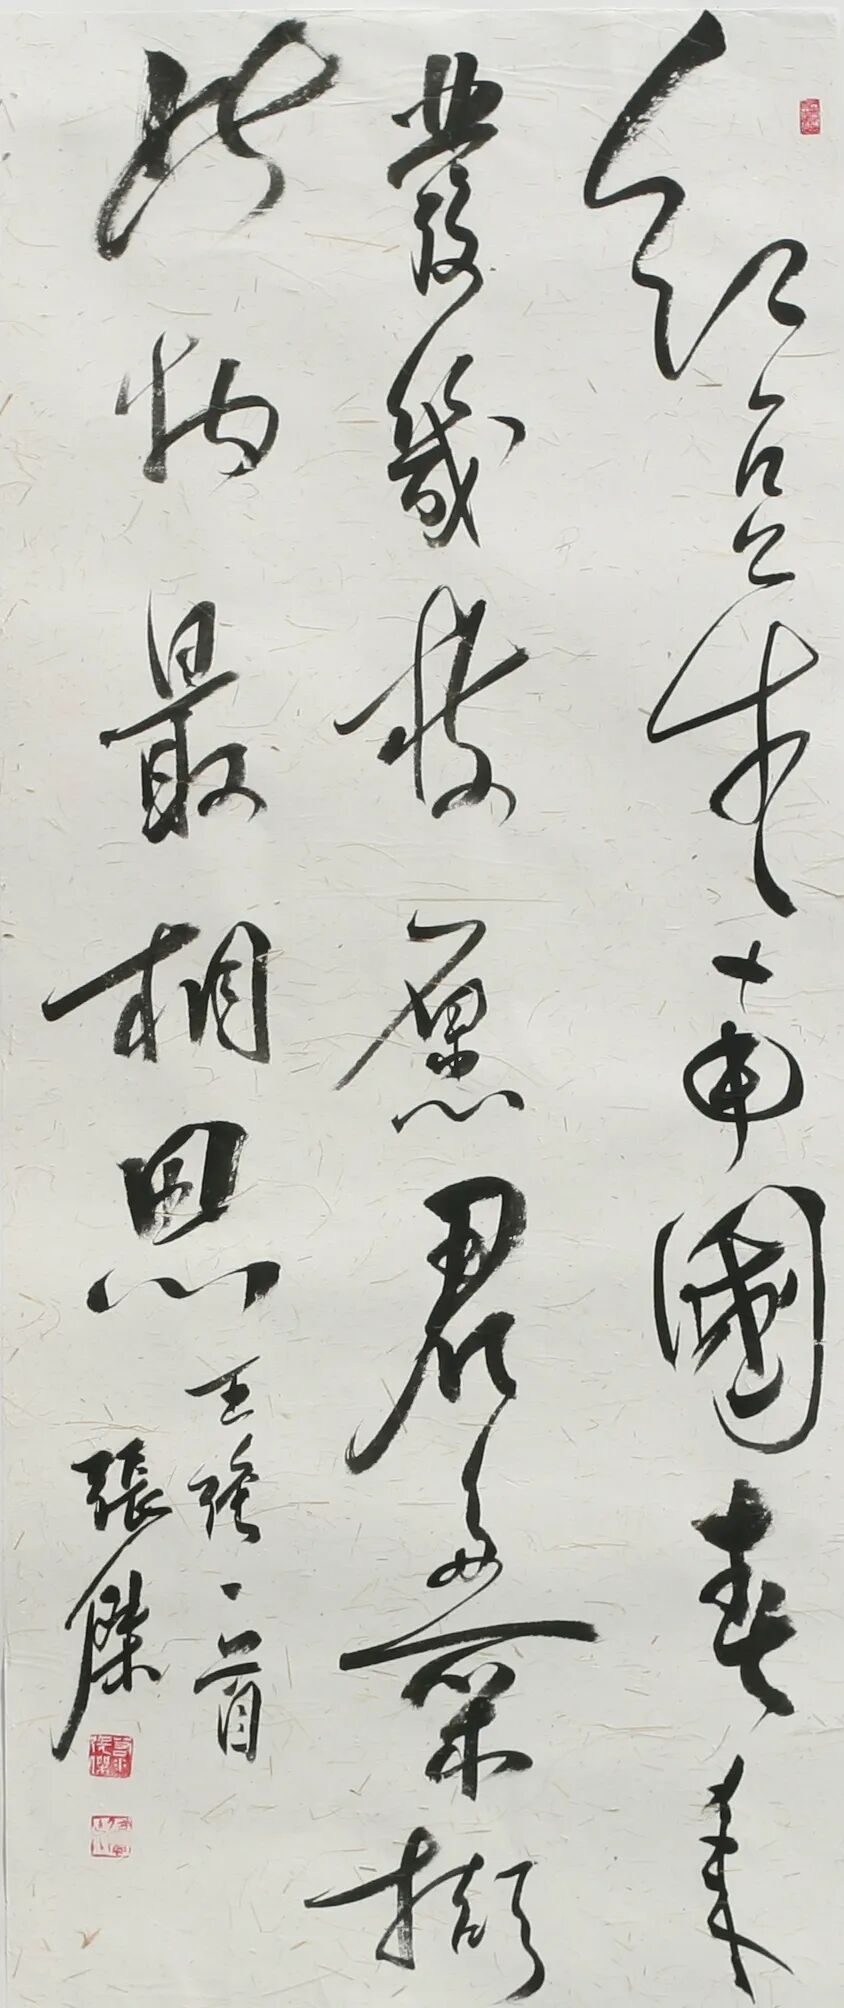 紅豆生南國春來
發幾枝愿君多采擷
此物最相思
王維一首
張傑